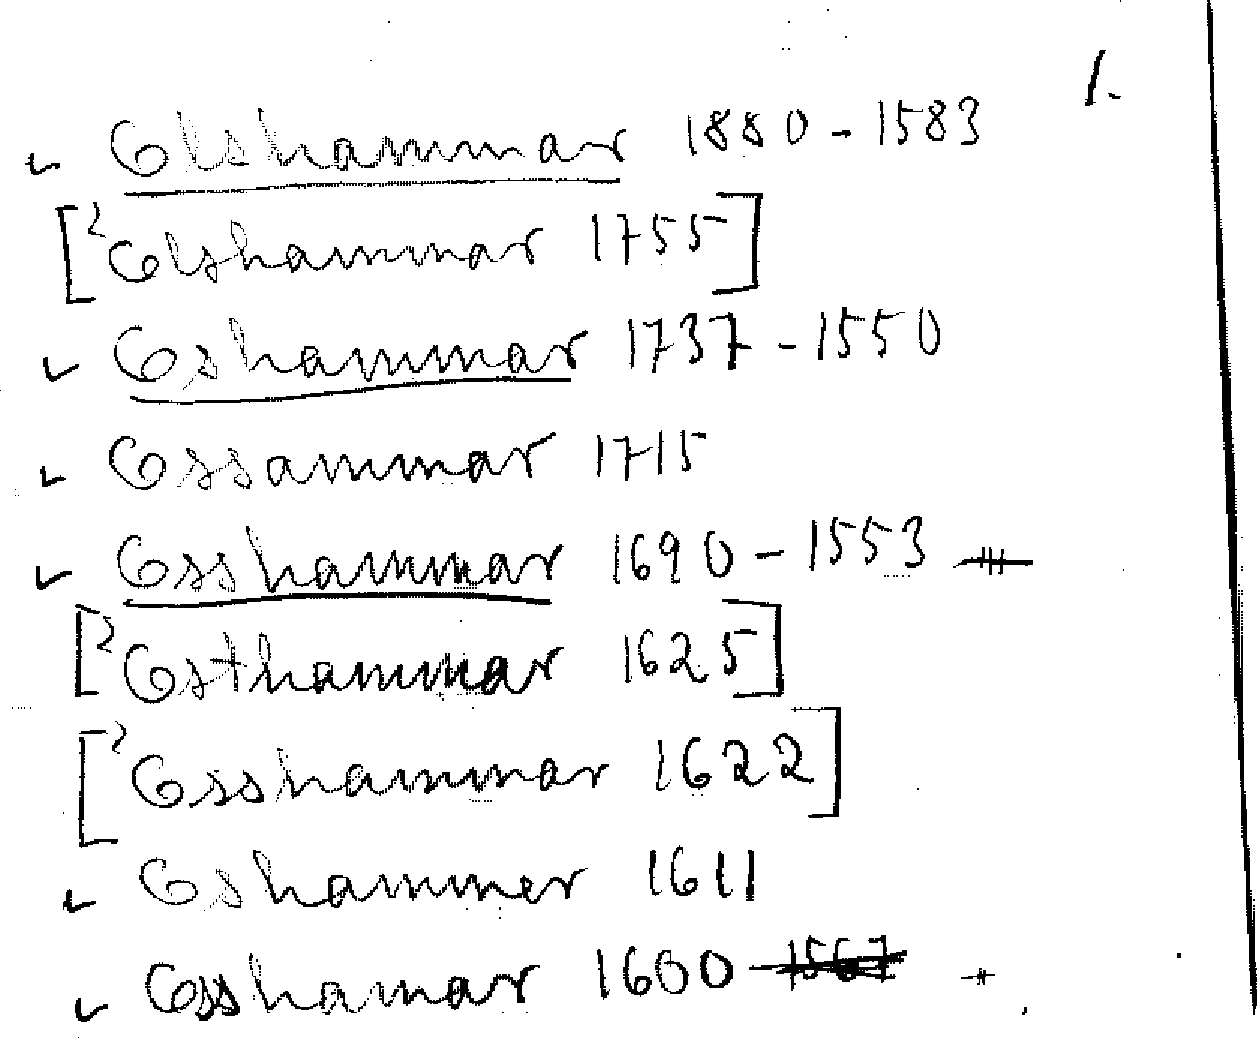 1.
✓ Olshammar 1880 - 1583
[? Olshammar 1755]
✓ Oshammar 1737 - 1550
✓ Ossammar 1715
✓ Osshammar 1690 - 1553 #
[? Osthammar 1625]
[? Osshammar 1622]
✓ Oshammer 1611
✓ Osshamar 1600 - 1567 #